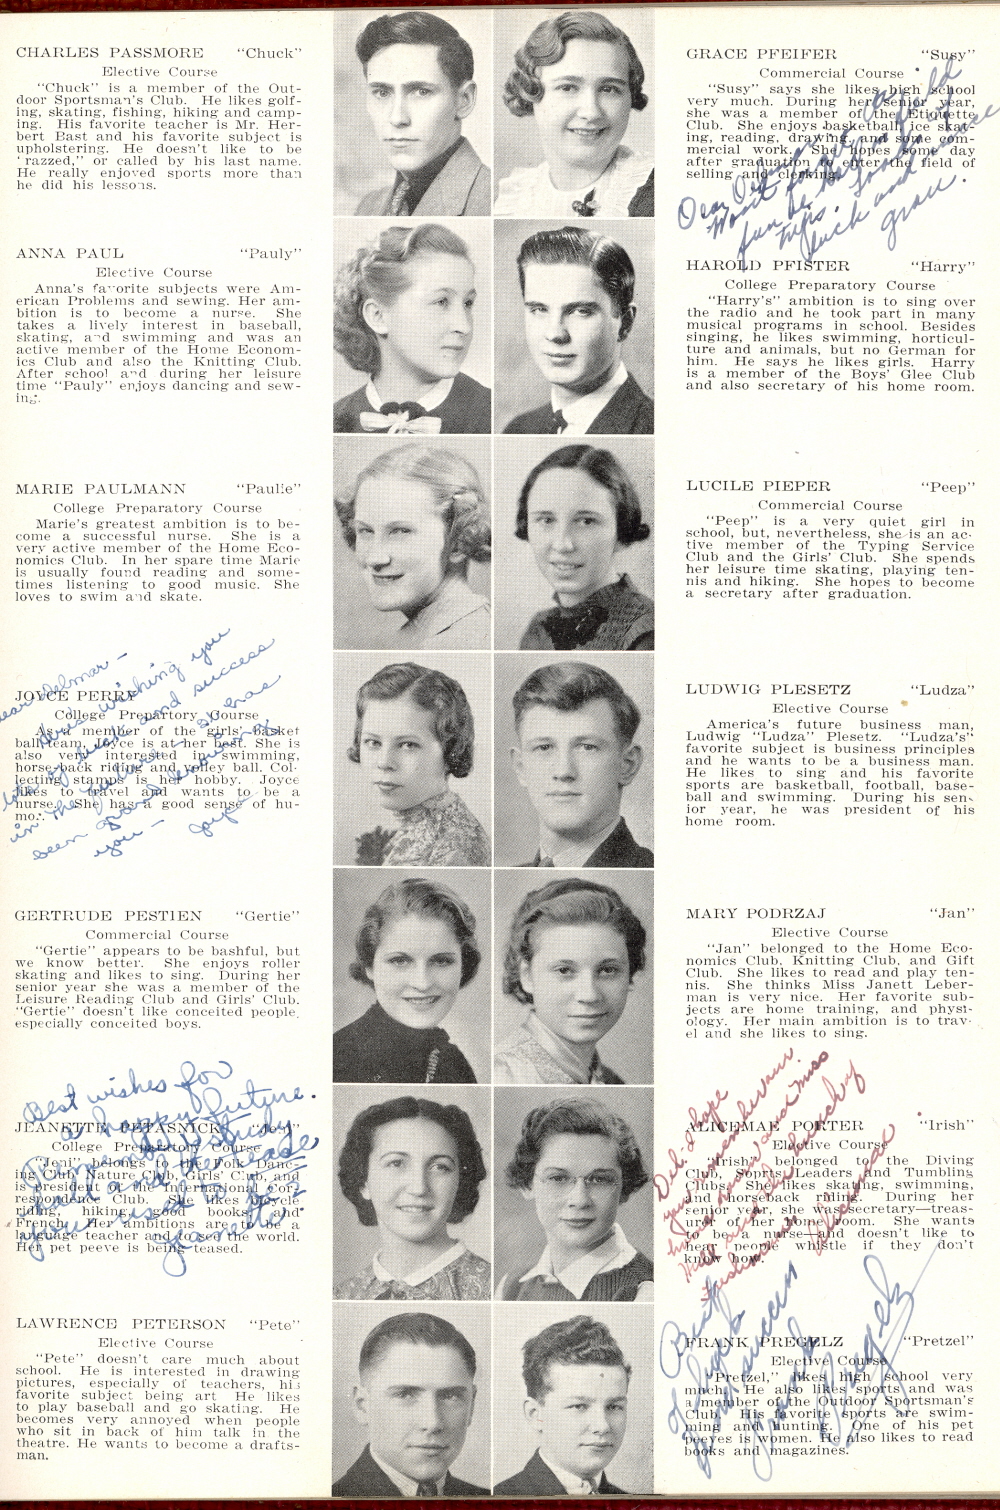 CHARLES PASSMORE "Chuck"
Elective Course
"Chuck" is a member of the Out-
door Sportsman's Club. He likes golf-
ing, skating, fishing, hiking and camp-
ing. His favorite teacher is Mr. Her-
bert Bast and his favorite subject is
upholstering. He doesn't like to be
'razzed," or called by his last name.
He really enjoyed sports more than
he did his lessons.
ANNA PAUL "Pauly"
Elective Course
Anna's favorite subjects were Am-
erican Problems and sewing. Her am-
bition is to become a nurse. She
takes a lively interest in baseball,
skating, and swimming and was an
active member of the Home Econom-
ics Club and also the Knitting Club.
After school and during her leisure
time "Pauly" enjoys dancing and sew-
ing.
MARIE PAULMANN "Paulie"
College Preparatory Course
Marie's greatest ambition is to be-
come a successful nurse. She is a
very active member of the Home Eco-
nomics Club. In her spare time Marie
is usually found reading and some-
times listening to good music. She
loves to swim and skate.
JOYCE PERRY
College Prepartory Course
As a member of the girls' basket
ball team, Joyce is at her best. She is
also very interested in swimming,
horse-back riding and volley ball. Col-
lecting stamps is her hobby. Joyce
likes to travel and wants to be a
nurse. She has a good sense of hu-
mor.
Dear Delmar —
Here's wishing you
lots of luck and success
in the future —
seen good
you — Joyce
GERTRUDE PESTIEN "Gertie"
Commercial Course
"Gertie" appears to be bashful, but
we know better. She enjoys roller
skating and likes to sing. During her
senior year she was a member of the
Leisure Reading Club and Girls' Club.
"Gertie" doesn't like conceited people,
especially conceited boys.
JEANETTE PETASNICK "Jeni"
College Preparatory Course
"Jeni" belongs to the Folk Danc-
ing Club, Nature Club, Girls' Club, and
is president of the International Cor-
respondence Club. She likes bicycle
riding, hiking, good books, and
French. Her ambitions are to be a
language teacher and to see the world.
Her pet peeve is being teased.
Best wishes for
a happy future.
Remember study
hall and the
you used to
Jeanette
LAWRENCE PETERSON "Pete"
Elective Course
"Pete" doesn't care much about
school. He is interested in drawing
pictures, especially of teachers, his
favorite subject being art He likes
to play baseball and go skating. He
becomes very annoyed when people
who sit in back of him talk in the
theatre. He wants to become a drafts-
man.
GRACE PFEIFER "Susy"
Commercial Course
"Susy" says she likes high school
very much. During her senior year,
she was a member of the Etiquette
Club. She enjoys basketball, ice skat-
ing, reading, drawing, and some com-
mercial work. She hopes some day
after graduation to enter the field of
selling and clerking.
Dear Delmar
Won't forget
fun we had on field
trips.
luck and
Grace.
HAROLD PFISTER "Harry"
College Preparatory Course
"Harry's" ambition is to sing over
the radio and he took part in many
musical programs in school. Besides
singing, he likes swimming, horticul-
ture and animals, but no German for
him. He says he likes girls. Harry
is a member of the Boys' Glee Club
and also secretary of his home room.
LUCILE PIEPER "Peep"
Commercial Course
"Peep" is a very quiet girl in
school, but, nevertheless, she is an ac-
tive member of the Typing Service
Club and the Girls' Club. She spends
her leisure time skating, playing ten-
nis and hiking. She hopes to become
a secretary after graduation.
LUDWIG PLESETZ "Ludza"
Elective Course
America's future business man,
Ludwig "Ludza" Plesetz. "Ludza's"
favorite subject is business principles
and he wants to be a business man.
He likes to sing and his favorite
sports are basketball, football, base-
ball and swimming. During his sen-
ior year, he was president of his
home room.
MARY PODRZAJ "Jan"
Elective Course
"Jan" belonged to the Home Eco-
nomics Club, Knitting Club, and Gift
Club. She likes to read and play ten-
nis. She thinks Miss Janett Leber-
man is very nice. Her favorite sub-
jects are home training, and physi-
ology. Her main ambition is to trav-
el and she likes to sing.
ALICEMAE PORTER "Irish"
Elective Course
"Irish" belonged to the Diving
Club, Soprts Leaders and Tumbling
Clubs. She likes skating, swimming,
and horseback riding. During her
senior year, she was secretary—treas-
urer of her home room. She wants
to be a nurse—and doesn't like to
hear people whistle if they don't
know how.
Del. I hope
you remember our
and Miss
Alicemae
FRANK PREGELZ "Pretzel"
Elective Course
"Pretzel," likes high school very
much. He also likes sports and was
a member of the Outdoor Sportsman's
Club. His favorite sports are swim-
ming and hunting. One of his pet
peeves is women. He also likes to read
books and magazines.
Best
of luck &
success
Frank Pregelz